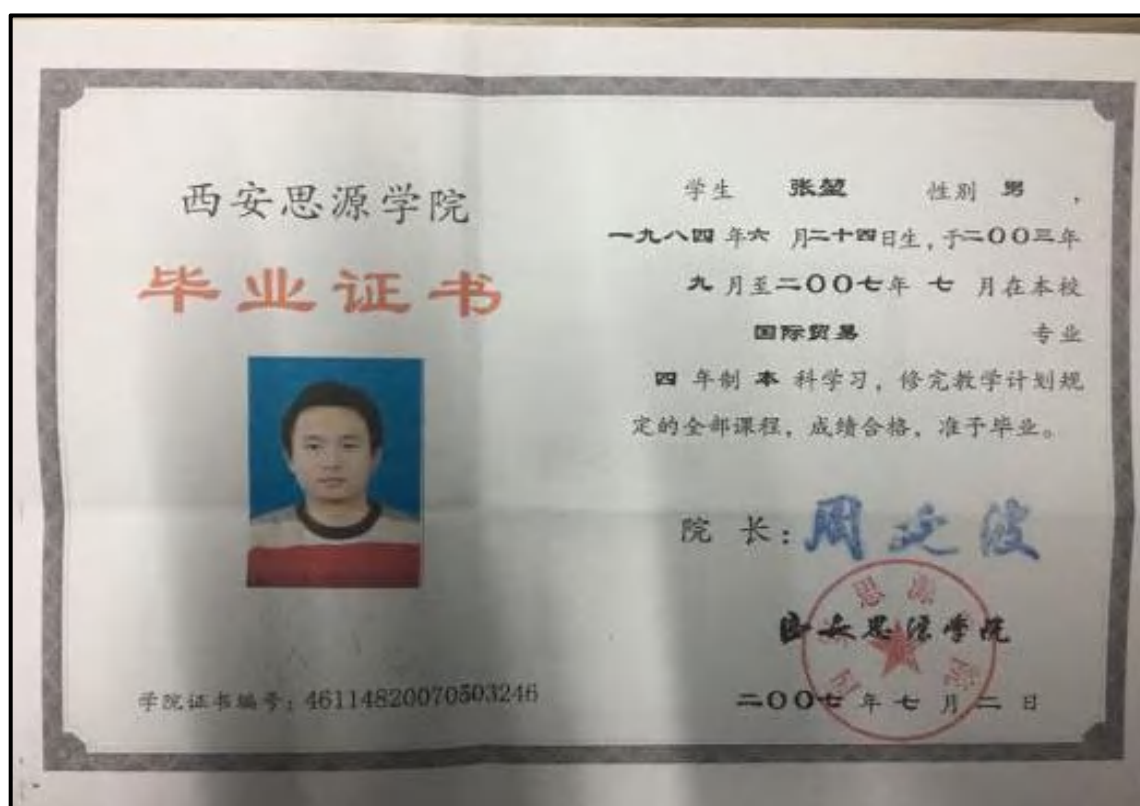 西安思源学院
毕业证书
学院证书编号：46114820070503246
学生 张堃 性别 男 ，
一九八四 年 六 月 二十四 日生，于 二〇〇三 年
九 月至 二〇〇七 年 七 月在本校
国际贸易 专业
四 年制 本 科学习，修完教学计划规
定的全部课程，成绩合格，准予毕业。
院 长：周延波
西安思源学院
二〇〇七 年 七 月 二 日